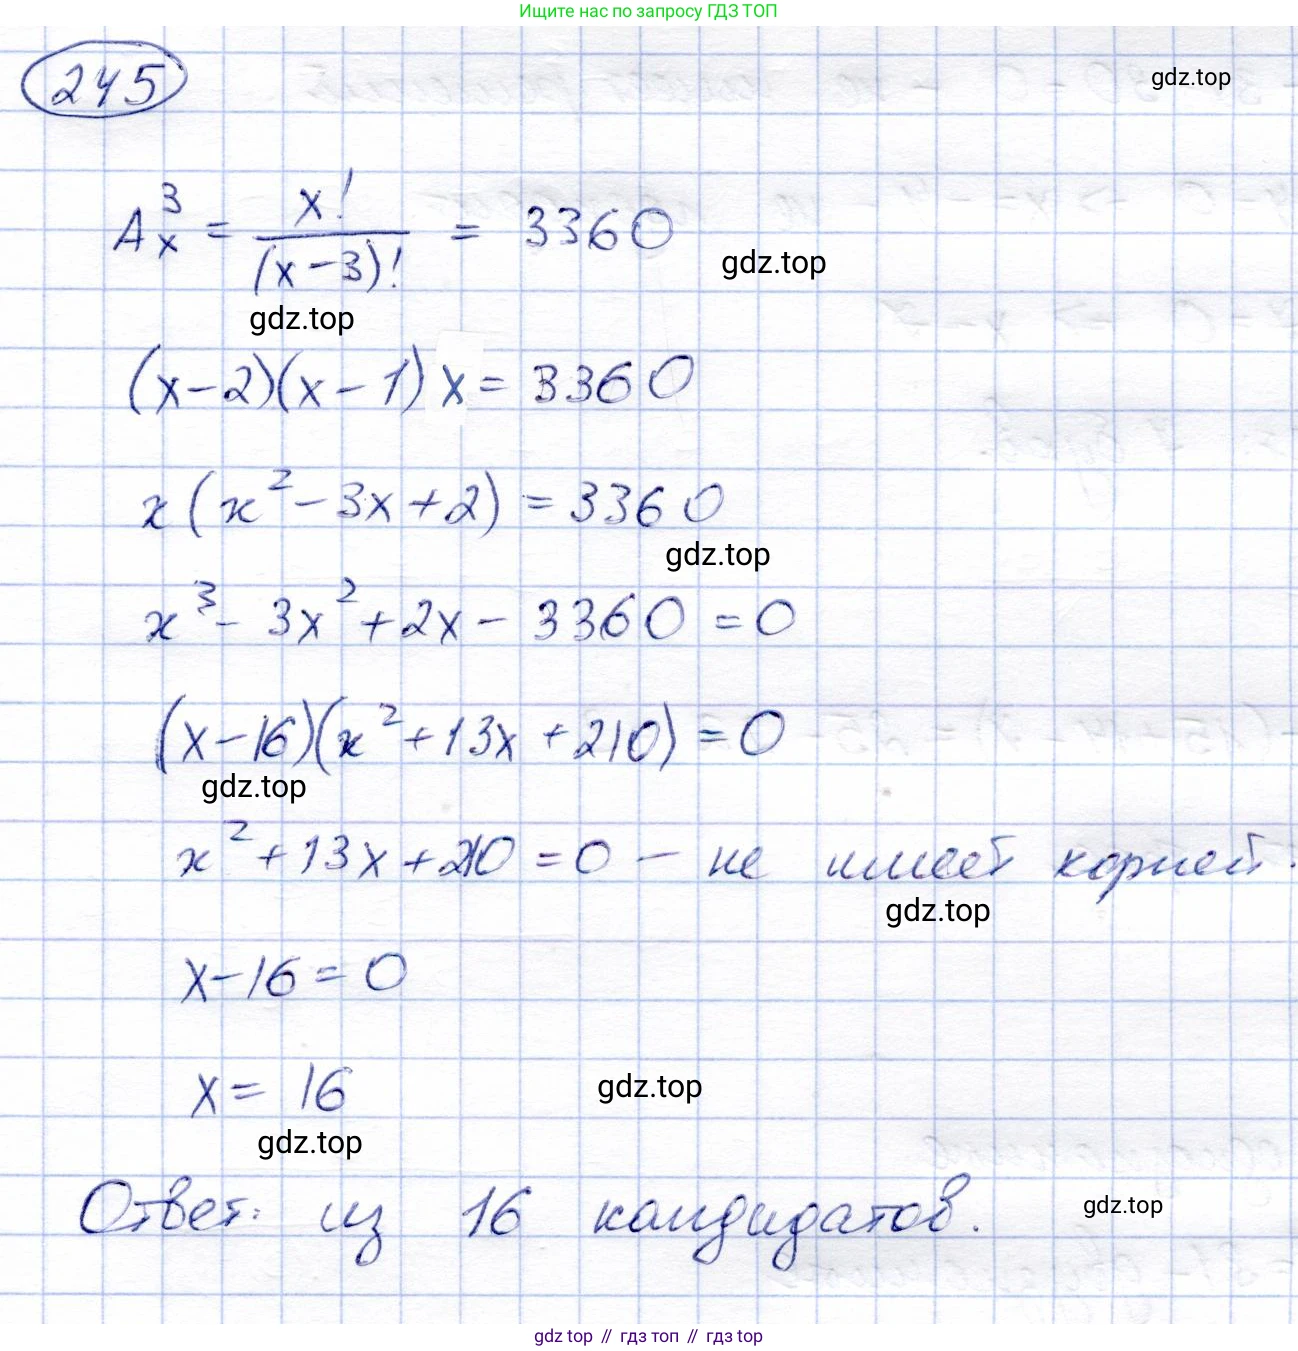 Ищите нас по запросу ГДЗ ТОП
245
gdz.top
A³ₓ = x! / (x-3)! = 3360
gdz.top
gdz.top
(x-2)(x-1)x = 3360
x(x²-3x+2) = 3360
gdz.top
x³-3x²+2x-3360=0
(x-16)(x²+13x+210)=0
gdz.top
x²+13x+210=0 - не имеет корней.
gdz.top
x-16=0
x=16
gdz.top
gdz.top
Ответ: из 16 кандидатов.
gdz.top
gdz top // гдз топ // гдз top